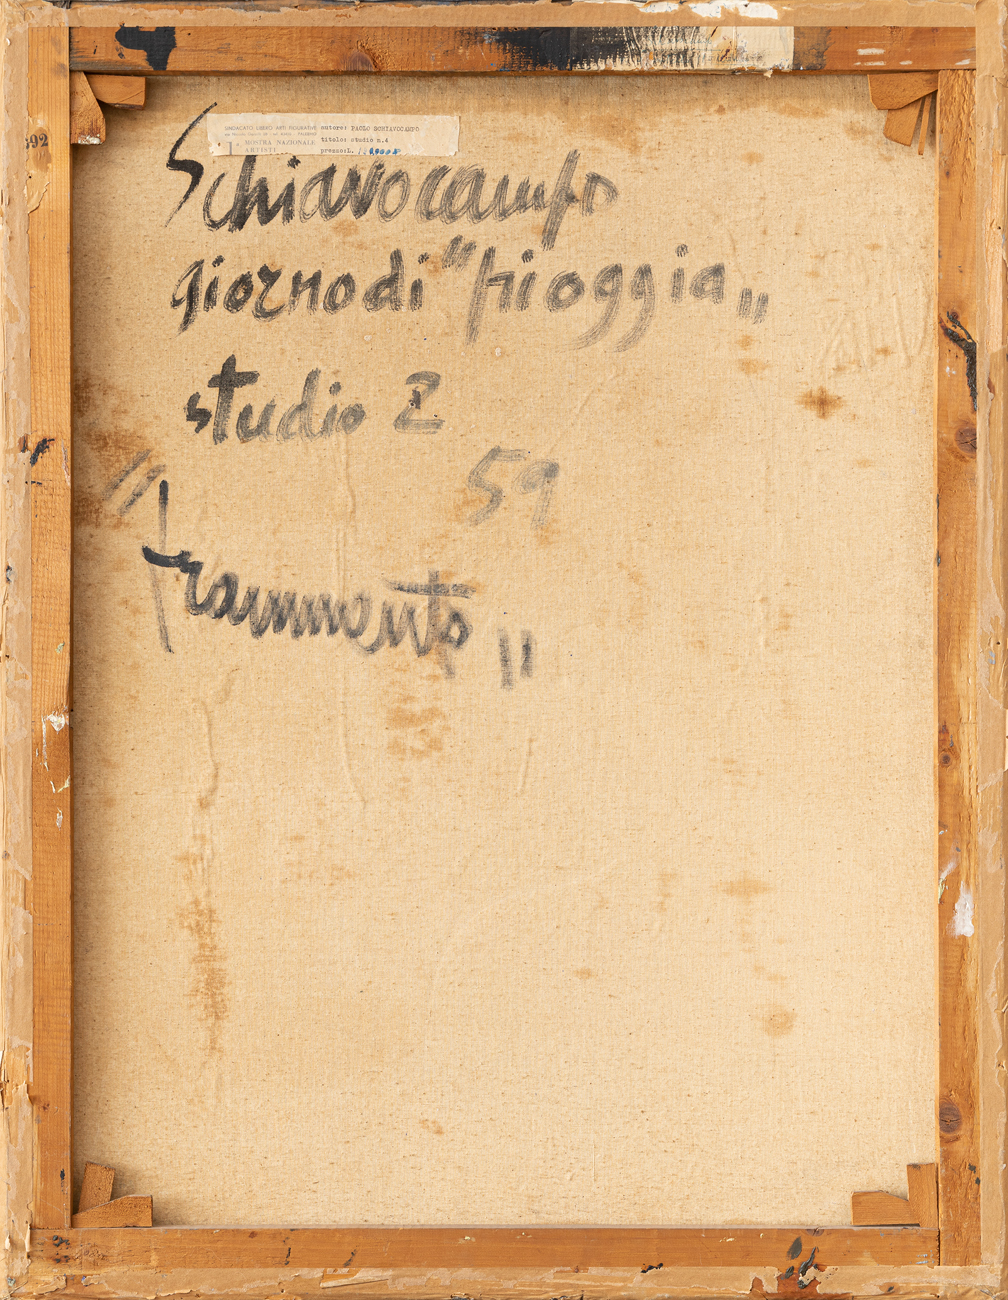 SINDACATO LIBERO ARTI FIGURATIVE
autore: PAOLO SCHIAVOCAMPO
titolo: studio n.4
1a MOSTRA NAZIONALE
ARTISTI
prezzo: L.
Schiavocampo
giorno di "pioggia"
studio 2
59
"frammento"
592